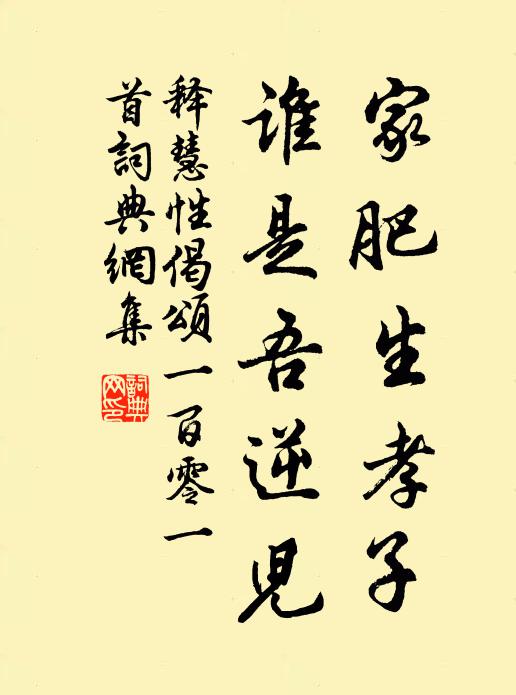 家肥生孝子
谁是吾逆児
释慧性偈頌一百零一
首詞典網集
詞典网印